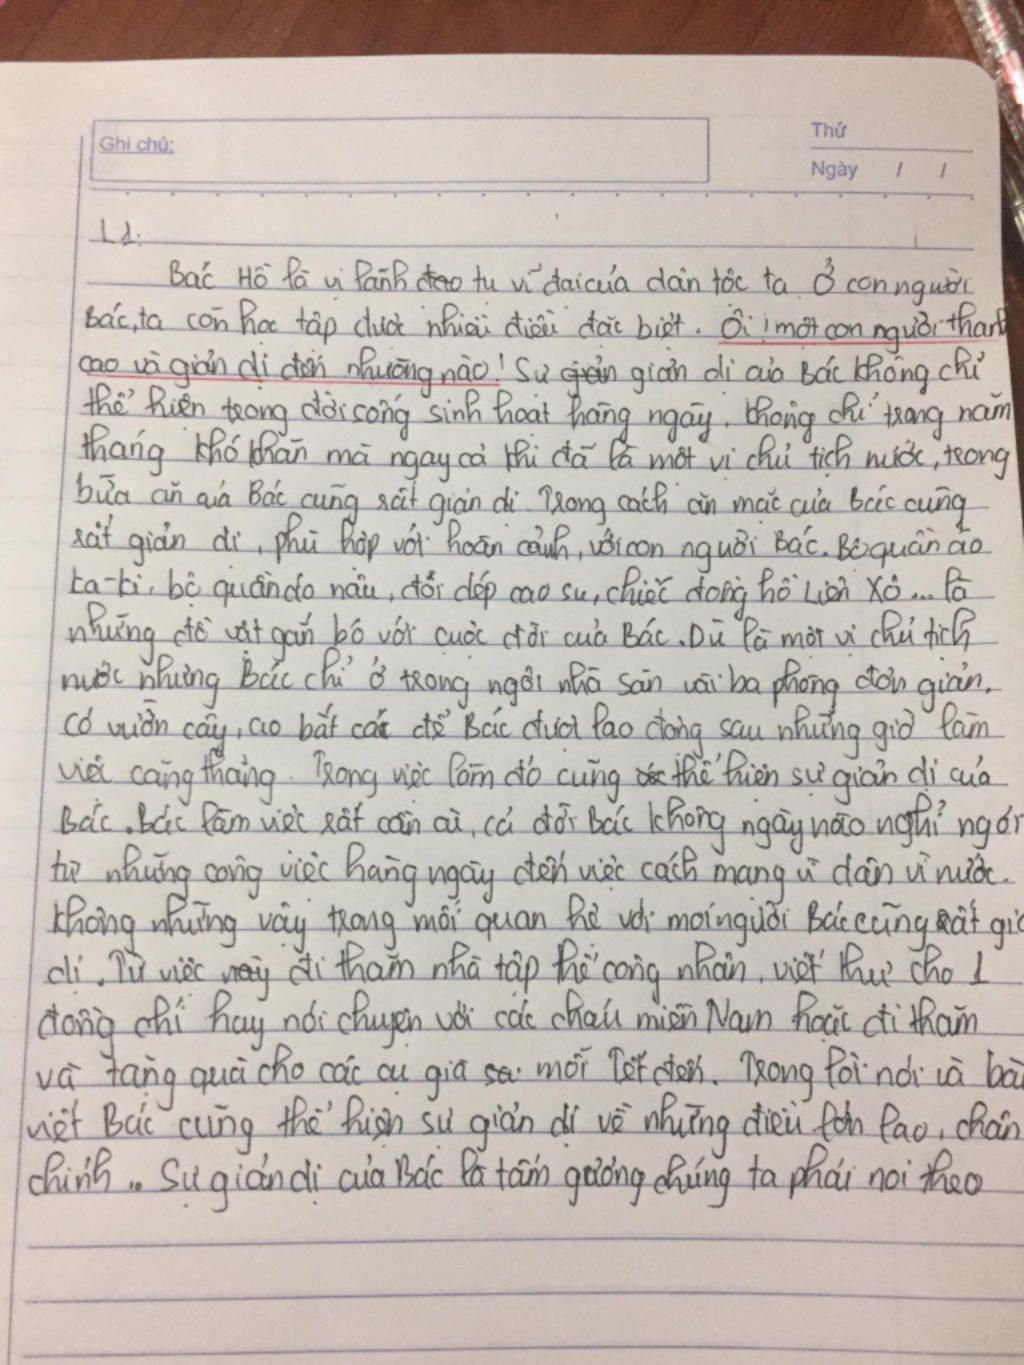 Ghi chú:
Thứ
Ngày / /
Bác Hồ là vị lãnh tụ vĩ đại của dân tộc ta. Ở con người
Bác, ta còn học tập được nhiều điều đặc biệt. Ôi! một con người thanh
cao và giản dị đến nhường nào! Sự giản dị của Bác không chỉ
thể hiện trong đời sống sinh hoạt hàng ngày, không chỉ trong năm
tháng khó khăn mà ngay cả khi đã là một vị chủ tịch nước, trong
bữa ăn của Bác cũng rất giản dị. Trong cách ăn mặc của Bác cũng
rất giản dị, phù hợp với hoàn cảnh, với con người Bác. Bộ quần áo
ka-ki, bộ quần áo nâu, đôi dép cao su, chiếc đồng hồ Liên Xô... là
những đồ vật gắn bó với cuộc đời của Bác. Dù là một vị chủ tịch
nước nhưng Bác chỉ ở trong ngôi nhà sàn vài ba phòng đơn giản.
Có vườn cây, ao bắt cá để Bác được lao động sau những giờ làm
việc căng thẳng. Trong việc làm đó cũng thể hiện sự giản dị của
Bác. Bác làm việc rất cần cù, cả đời Bác không ngày nào nghỉ ngơi
từ những công việc hàng ngày đến việc cách mạng vì dân vì nước.
Không những vậy trong mối quan hệ với mọi người Bác cũng rất giả
dị. Từ việc đi thăm nhà tập thể công nhân, viết thư cho 1
đồng chí hay nói chuyện với các cháu miền Nam hoặc đi thăm
và tặng quà cho các cụ già mỗi Tết đến. Trong lời nói và bài
viết Bác cũng thể hiện sự giản dị về những điều lớn lao, chân
chính.. Sự giản dị của Bác là tấm gương chúng ta phải noi theo